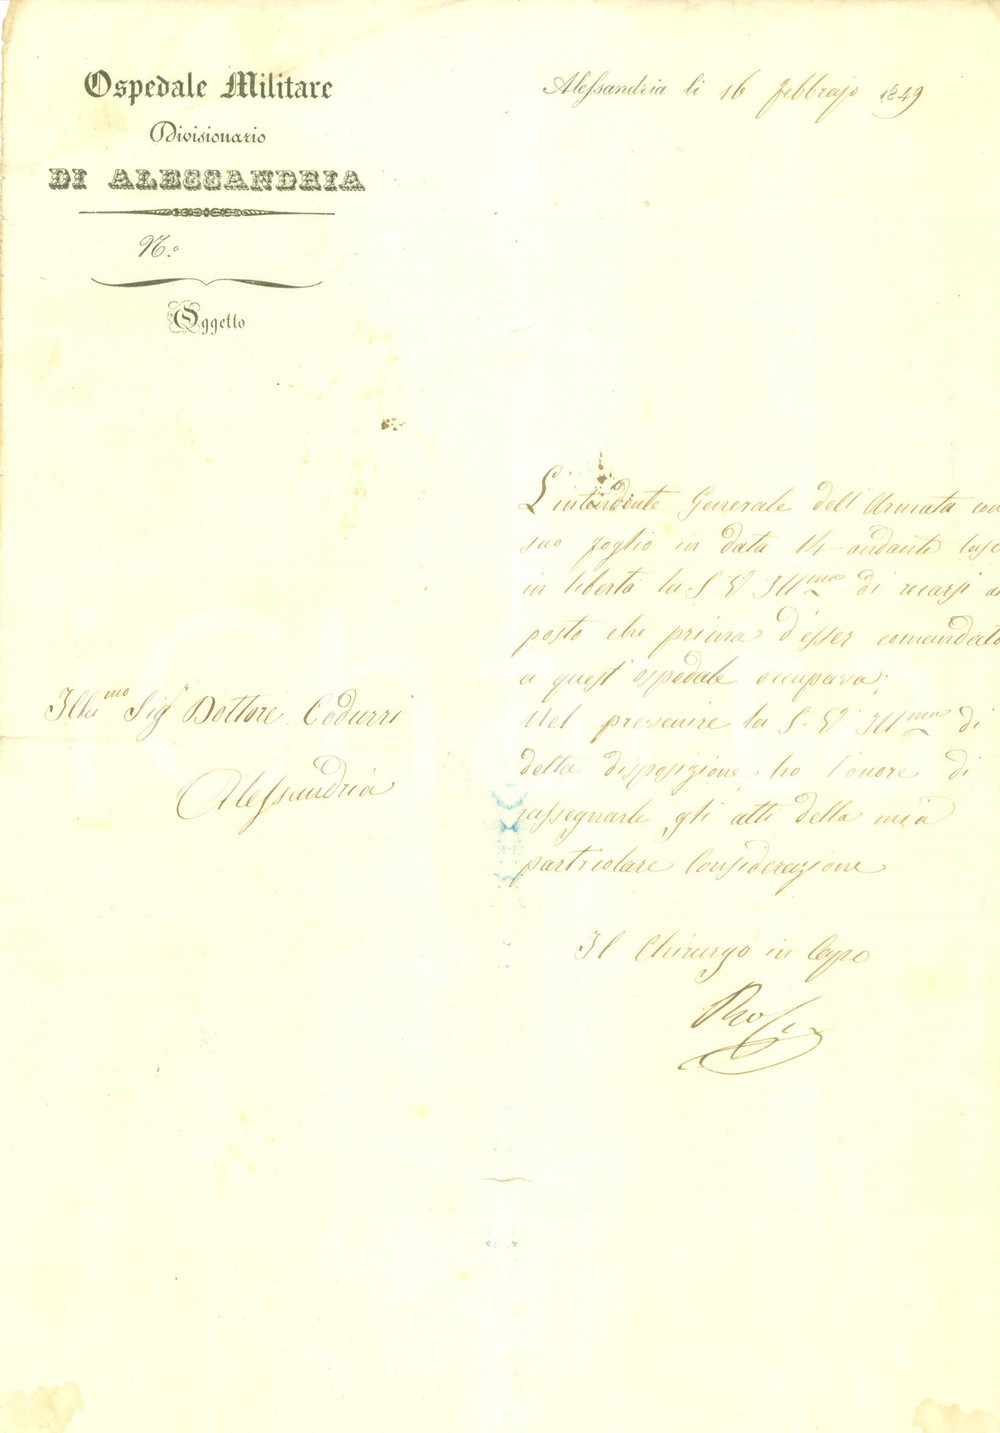 Ospedale Militare
Divisionario
DI ALESSANDRIA
N.o
Oggetto
Alessandria li 16 febbrajo 1849
L'intendente Generale dell'Armata con
suo foglio in data 14 andante lasc
in libertà la S V Ill.mo di recarsi a
posto che prima d'esser comandato
a quest'ospedale occupava.
Nel prevenire la S. V Ill.mo di
detta disposizione ho l'onore di
rassegnarle gli atti della mia
particolare Considerazione
Ill.mo Sig.r Dottore Codurri
Alessandria
Il Chirurgo in Capo